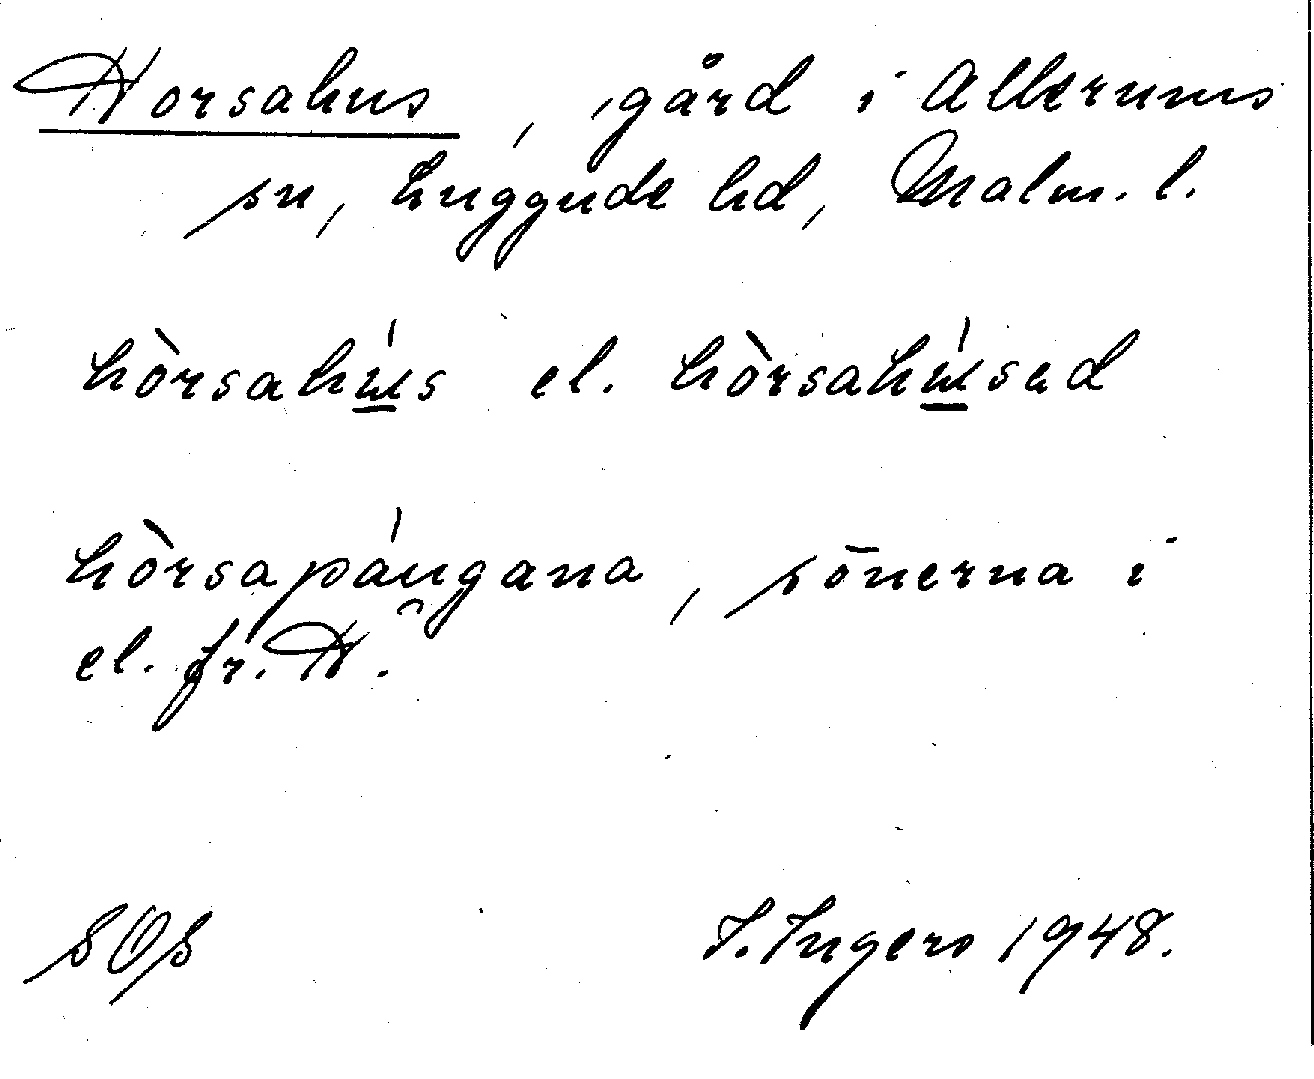 Horsahus, gård i Allerums
sn, Luggude hd, Malm. l.
hòrsahú̱s el. hòrsahú̱sad
hòrsapáugana, sōnerna i
el. fr. H.
SOS
I. Ingers 1948.